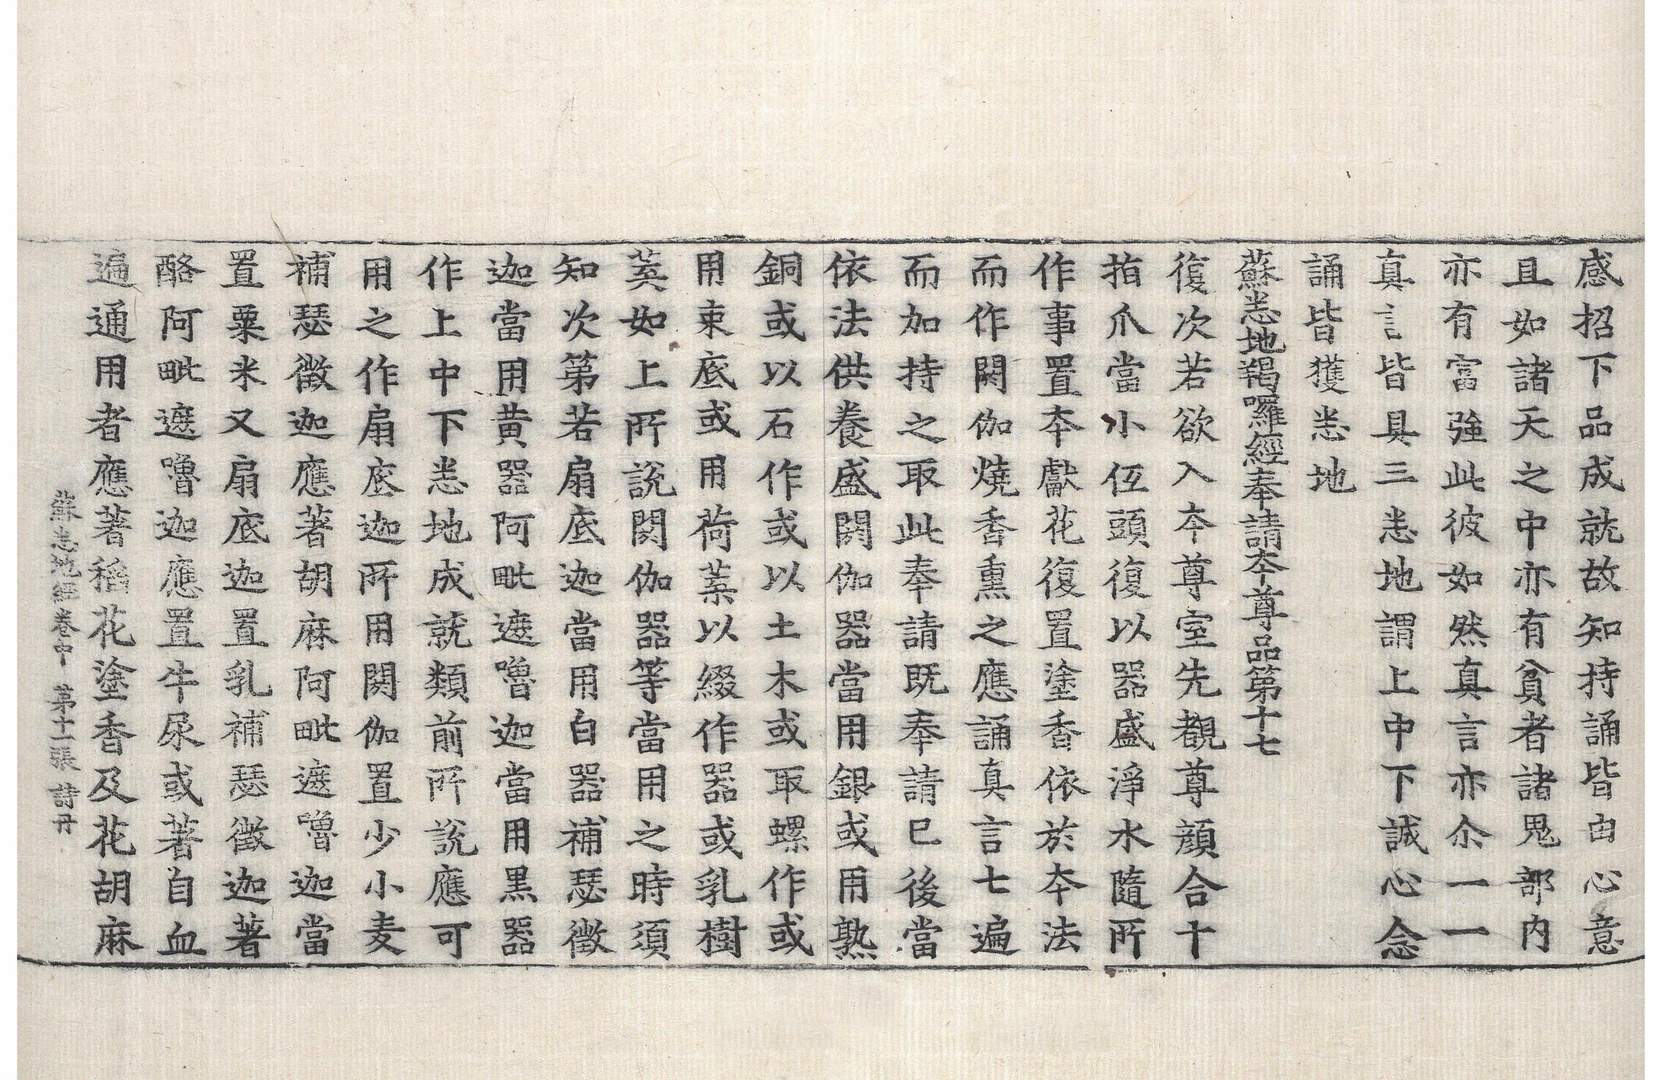 感招下品成就故知持誦皆由心意
且如諸天之中亦有貧者諸鬼部内
亦有富強此彼如然真言亦尒一一
真言皆具三悉地謂上中下誠心念
誦皆獲悉地
蘇悉地羯囉經奉請本尊品第十七
復次若欲入夲尊室先觀尊顔合十
指爪當小伍頭復以器盛淨水隨所
作事置夲獻花復置塗香依於夲法
而作閼伽燒香熏之應誦真言七遍
而加持之取此奉請既奉請已後當
依法供養盛閼伽器當用銀或用熟
銅或以石作或以土木或取螺作或
用束底或用荷葉以綴作器或乳樹
葉如上所說閼伽器等當用之時須
知次第若扇底迦當用白器補瑟徵
迦當用黄器阿毗遮嚕迦當用黒器
作上中下悉地成就類前所說應可
用之作扇底迦所用閼伽置少小麦
補瑟徵迦應著胡麻阿毗遮嚕迦當
置粟米又扇底迦置乳補瑟徵迦著
酪阿毗遮嚕迦應置牛尿或著自血
遍通用者應著稻花塗香及花胡麻
蘇悉地經卷中 第十一張 詩冄